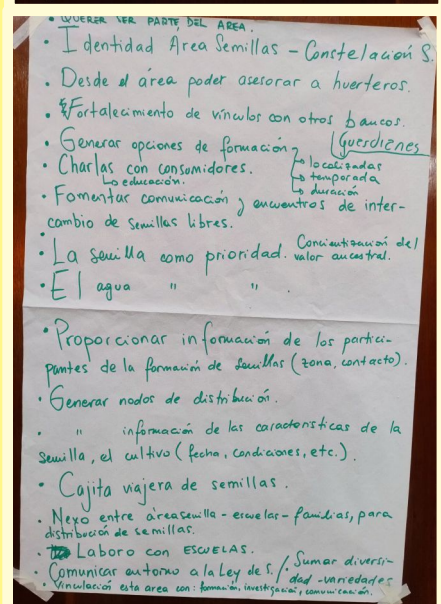 • QUERER SER PARTE DEL AREA.
• Identidad Area Semillas - Constelación S.
• Desde el área poder asesorar a huerteros.
• Fortalecimiento de vínculos con otros bancos.
• Generar opciones de formación Guardianes
• Charlas con consumidores. ↳ localizadas
↳ educación. ↳ temporada
↳ duración
• Fomentar comunicación y encuentros de inter-
cambio de semillas libres.
• La semilla como prioridad. Concientización del
valor ancestral.
• El agua " " .
• Proporcionar información de los partici-
pantes de la formación de semillas (zona, contacto).
• Generar nodos de distribución.
• " información de las características de la
semilla, el cultivo (fecha, condiciones, etc.).
• Cajita viajera de semillas.
• Nexo entre área semilla - escuelas - familias, para
distribución de semillas.
• Laboro con ESCUELAS.
• Comunicar entorno a la Ley de S. / Sumar diversi-
dad - variedades
• Vinculación esta area con: formación, investigación, comunicación.